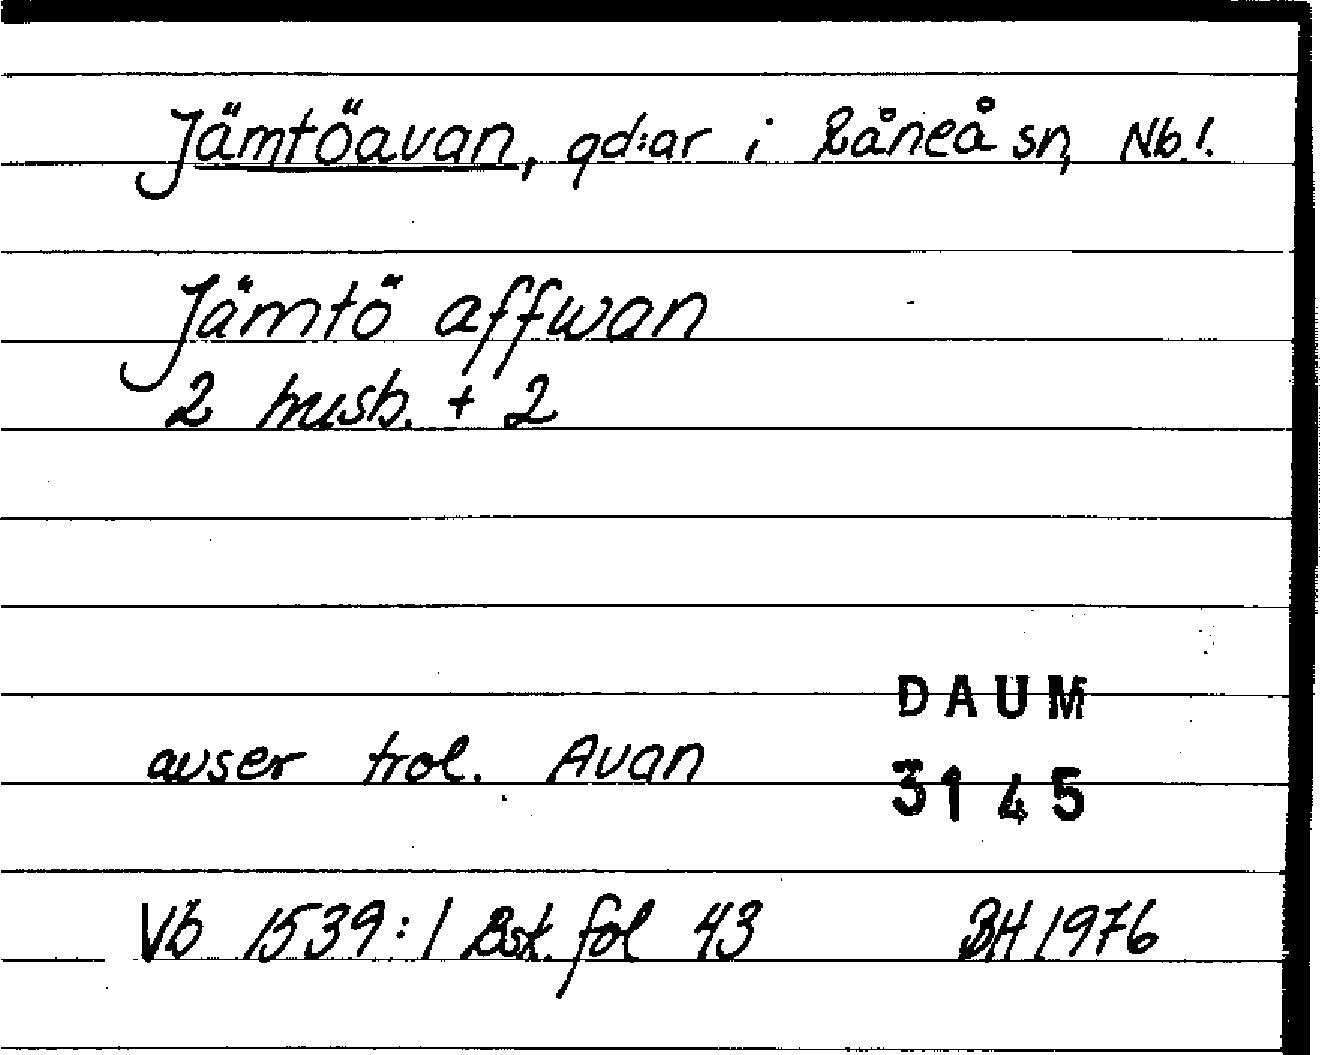 Jämtöavan, gd:ar i Råneå sn, Nb.l.
Jämtö affwan
2 husb. + 2
DAUM
avser trol. Avan
3145
Vb 1539:1 Bst. fol 43 BH 1976